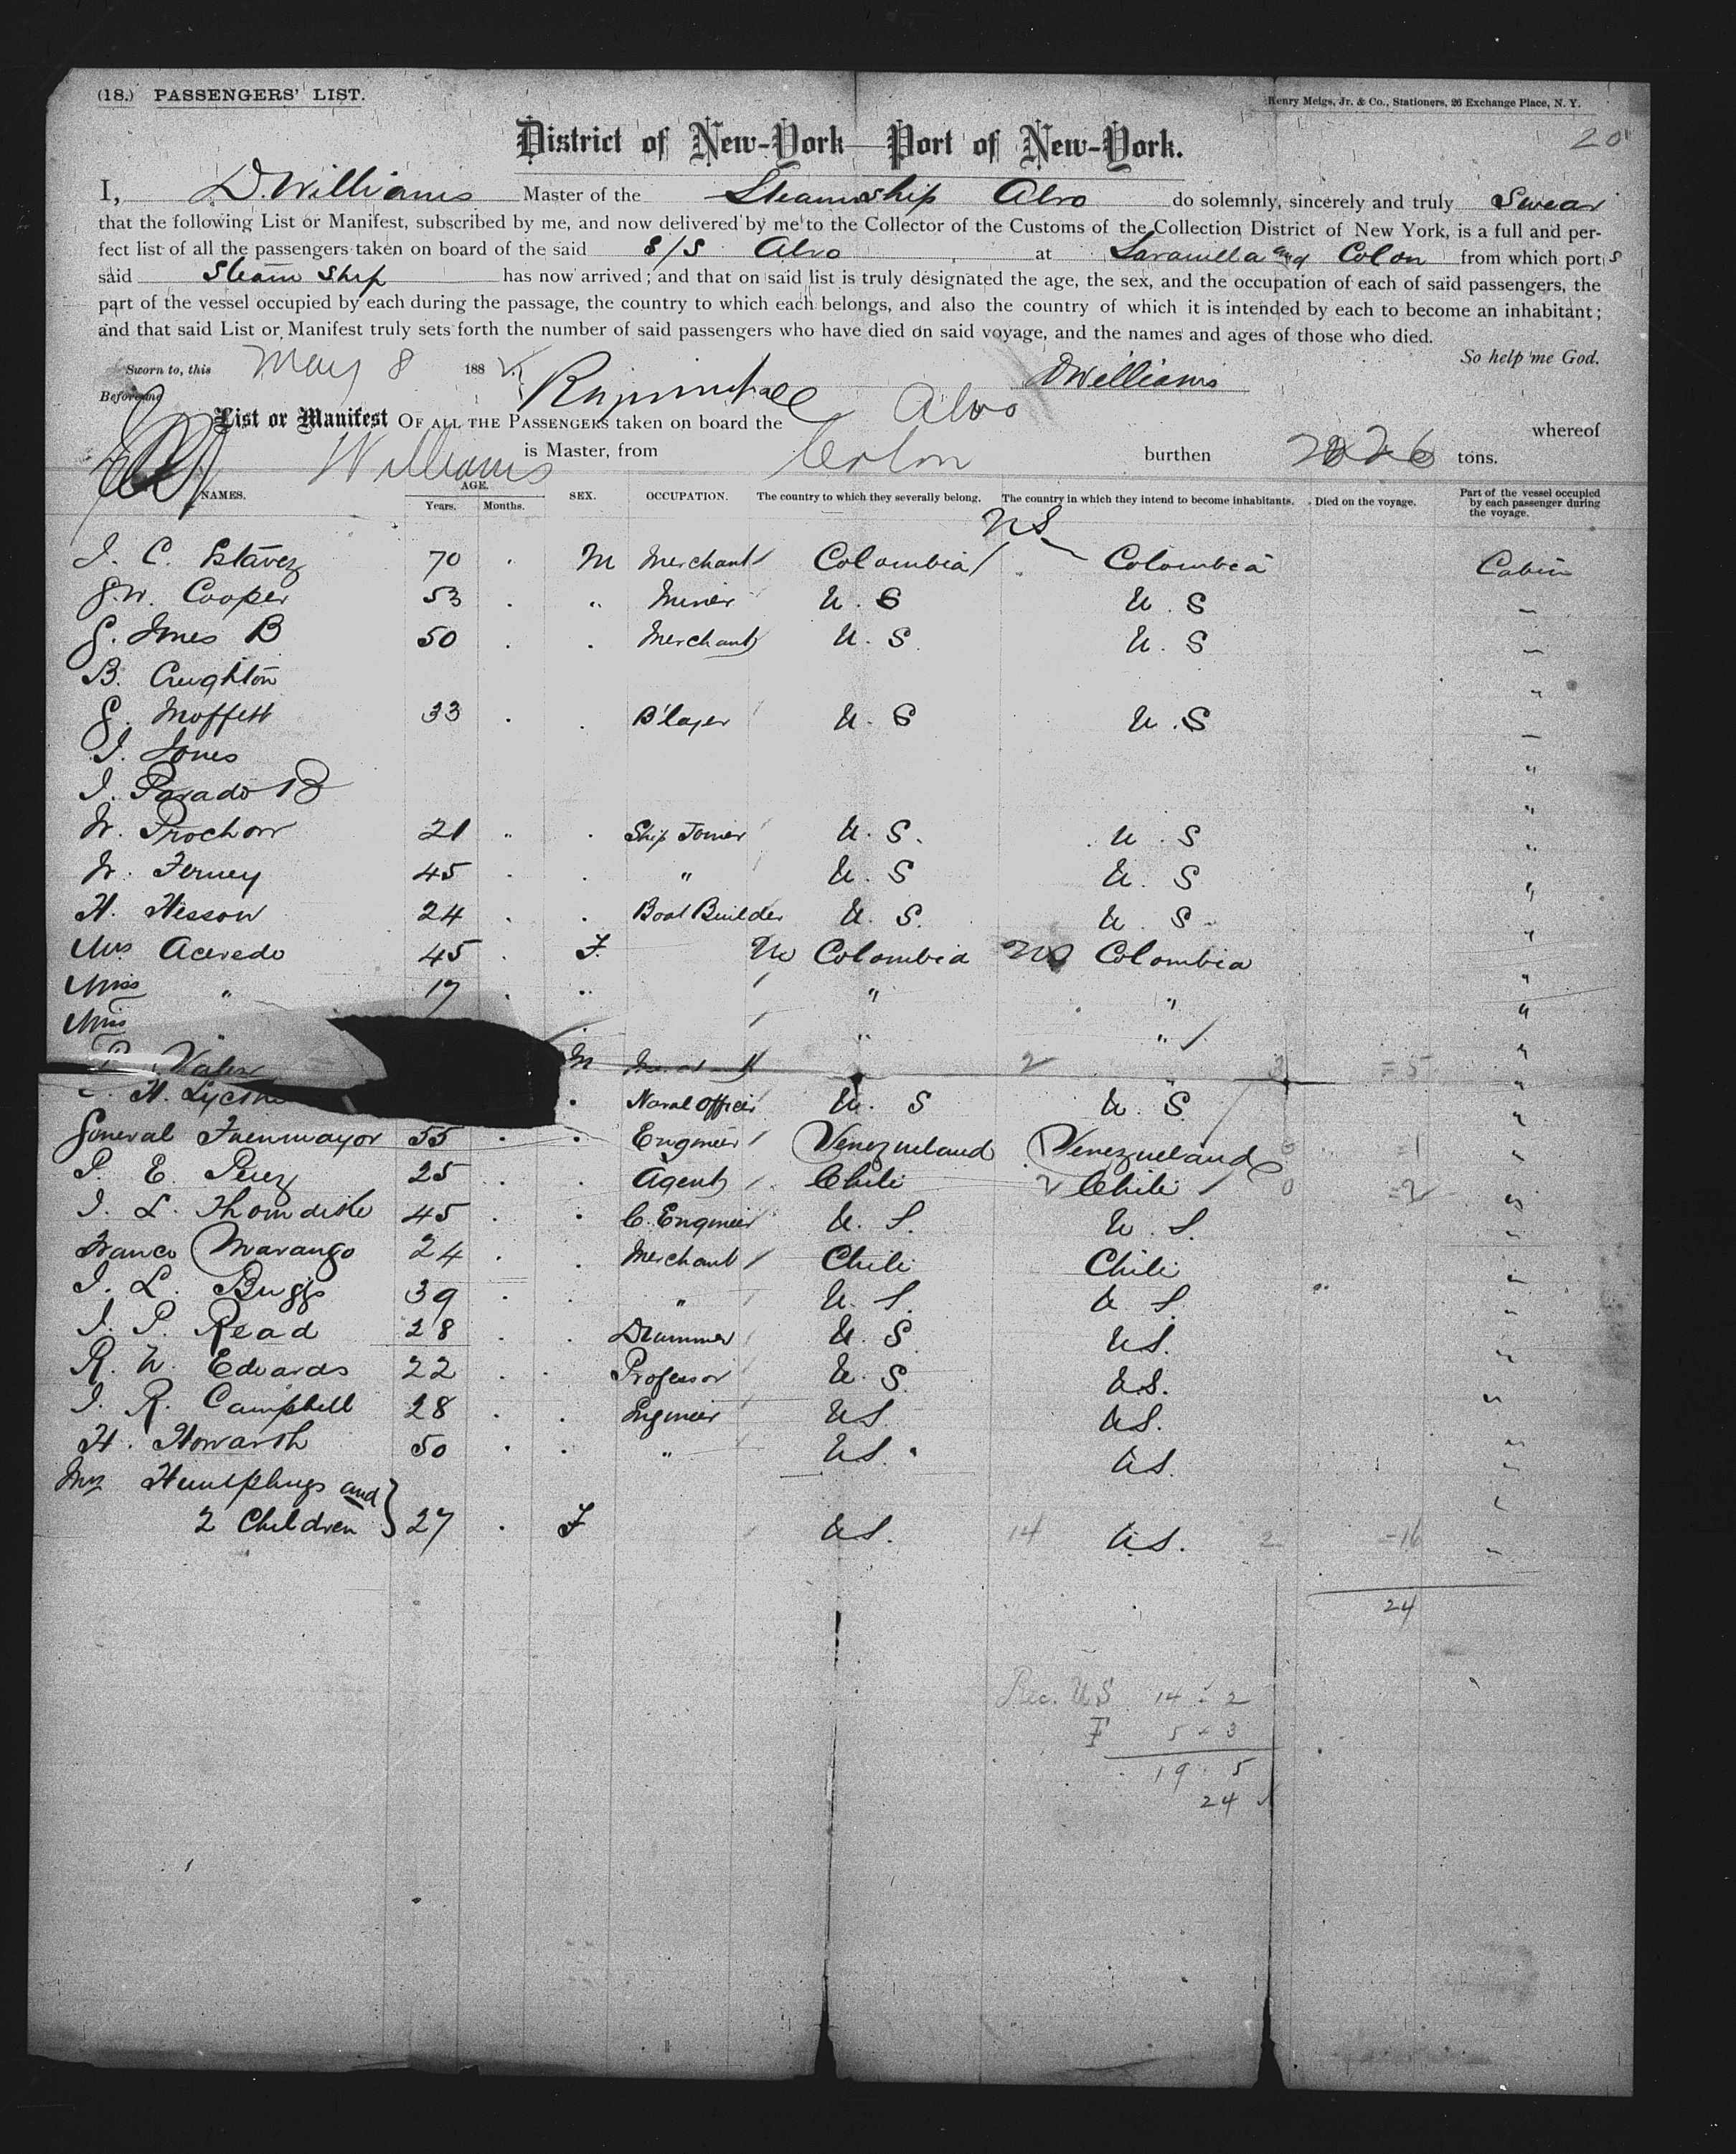 (18.) PASSENGERS' LIST.
Henry Meigs, Jr. & Co., Stationers, 26 Exchange Place, N. Y.
20
District of New-York—Port of New-York.
I, D. Williams Master of the Steamship Alvo do solemnly, sincerely and truly Swear
that the following List or Manifest, subscribed by me, and now delivered by me to the Collector of the Customs of the Collection District of New York, is a full and per-
fect list of all the passengers taken on board of the said S/S Alvo at Savanilla and Colon from which port s
said Steam Ship has now arrived; and that on said list is truly designated the age, the sex, and the occupation of each of said passengers, the
part of the vessel occupied by each during the passage, the country to which each belongs, and also the country of which it is intended by each to become an inhabitant;
and that said List or Manifest truly sets forth the number of said passengers who have died on said voyage, and the names and ages of those who died.
So help me God.
Sworn to, this May 8 188
D Williams
Before me
List or Manifest OF ALL THE PASSENGERS taken on board the Alvo whereof
Williams is Master, from Colon burthen tons.
NAMES. AGE. Years. Months. SEX. OCCUPATION. The country to which they severally belong. The country in which they intend to become inhabitants. Died on the voyage. Part of the vessel occupied by each passenger during the voyage.
US
J. C. Estavez 70 " M Merchant Colombia Colombia Cabin
G. W. Cooper 53 . " Miner U. S U. S "
G. Jmes B 50 . . Merchant U. S. U. S "
B. Creighton "
G. Moffett 33 . . B'layer U. S U. S "
J. Jones "
J. Parado B "
W. Prochow 21 " . Ship Joiner U. S. U. S "
W. Ferney 45 . . " U. S U. S "
H. Hesson 24 . . Boat Builder U. S. U. S. "
Mrs. Acevedo 45 . F. Colombia US Colombia "
Miss " 17 . " " " "
Miss " " "
M 2 3 = 5 "
H. . Naval Officer U. S U. S "
General Fuenmayor 55 . . Engineer Venezueland Venezueland 0 = 1 "
P. E. Perez 25 . . Agent Chili 2 Chili 0 = 2 "
J. L. Thorndike 45 . . C. Engineer U. S. U. S. "
Franco Marango 24 . . Merchant Chili Chili "
J. L. Buggs 39 . . " U. S. U S. "
J. P. Read 28 . . Drummer U. S. US. "
R. W. Edwards 22 . . Professor U. S. US. "
J. R. Campbell 28 . . Engineer US. US. "
H. Howarth 50 . . " US. US. "
Mrs Humphrys and
2 Children } 27 . F US. 14 US. 2 = 16 "
24
Rec. US 14 - 2
F 5 - 3
19 - 5
24